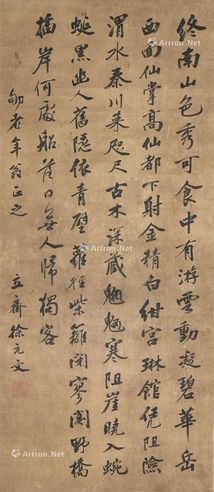 終南山色秀可食中有游雲動凝碧華岳
西面仙掌高仙都下射金精白紺宮琳館凭阻險
渭水秦川來咫尺古木深藏魍魎寒阻崖曉入蜿
蜒黑幽人舊隱依青壁蘿徑柴籬閉寥闃野橋
插岸何處船落日無人歸獨客
老年翁正之
立齋徐元文